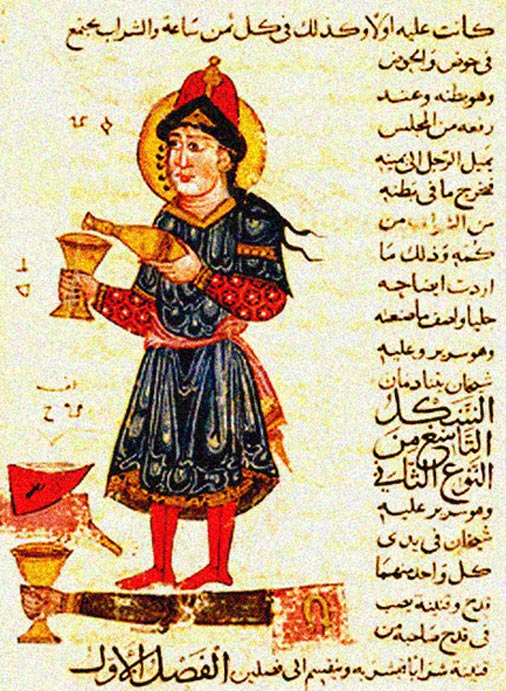 كانت عليه اولا وكذلك فى كل ثمن ساعة والشراب يجتمع
فى حوض والحوض
وهو بطنه وعند
رفعه من المجلس
يميل الرجل الى يمينه
فيخرج ما فى بطنه
من الشراب من
كمه وذلك ما
اردت ايضاحه
وهو سرير وعليه
شيخان يتنادمان
الشكل
التاسع من
النوع الثانى
وهو سرير عليه
شيخان فى يدى
كل واحد منهما
قدح وقنينة يصب
فى قدح صاحبه من
قنينة شرابا فيشربه وينقسم الى فصلين الفصل الاول